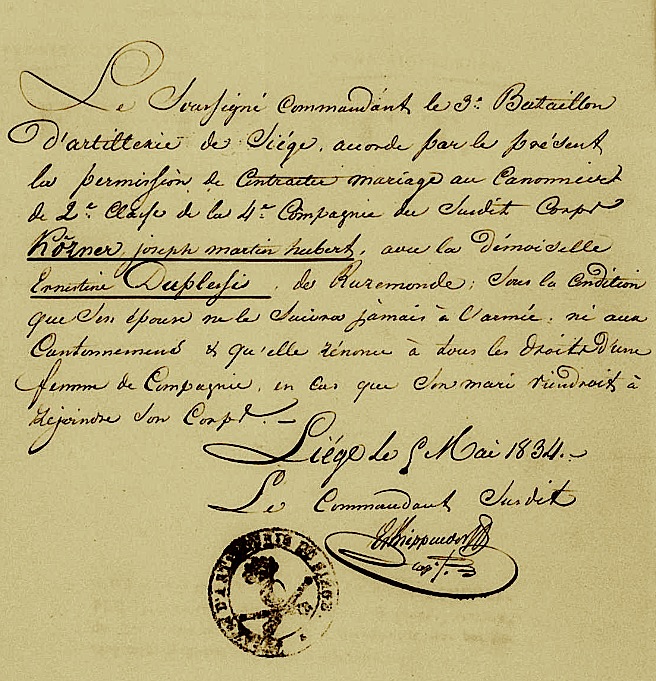 Le Soussigné Commandant le 3e Bataillon
D'artillerie de Siége, accorde par le présent
la permission de Contracter mariage au Canonnier
de 2e Classe de la 4e Compagnie du Susdit Corps
Körner, joseph martin hubert, avec la démoiselle
Ernestine Duplessis, de Ruremonde; Sous la Condition
que Son épouse ne le Suivra jàmais à l'armée, ni aux
Cantonnemens & qu'elle rénonce à tous les droits d'une
femme de Compagnie, en cas que Son mari viendroit à
réjoindre Son Corps. —
Liége le 5 Mai 1834. —
Le Commandant Susdit
D'ARTILLERIE DE SIEGE